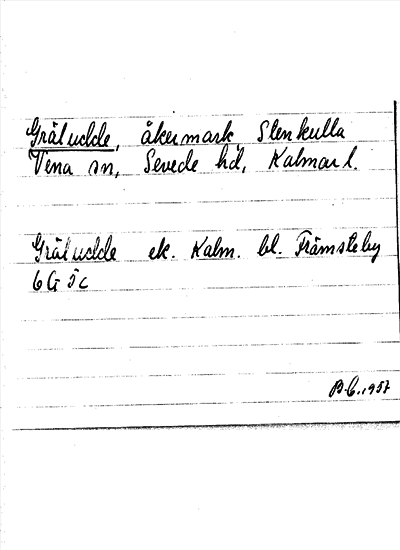 Gräludde, åkermark, Stenkulla
Vena sn, Sevede hd, Kalmar l.
Gräludde ek. Kalm. bl. Främsteby
6G 5c
B.C. 1957